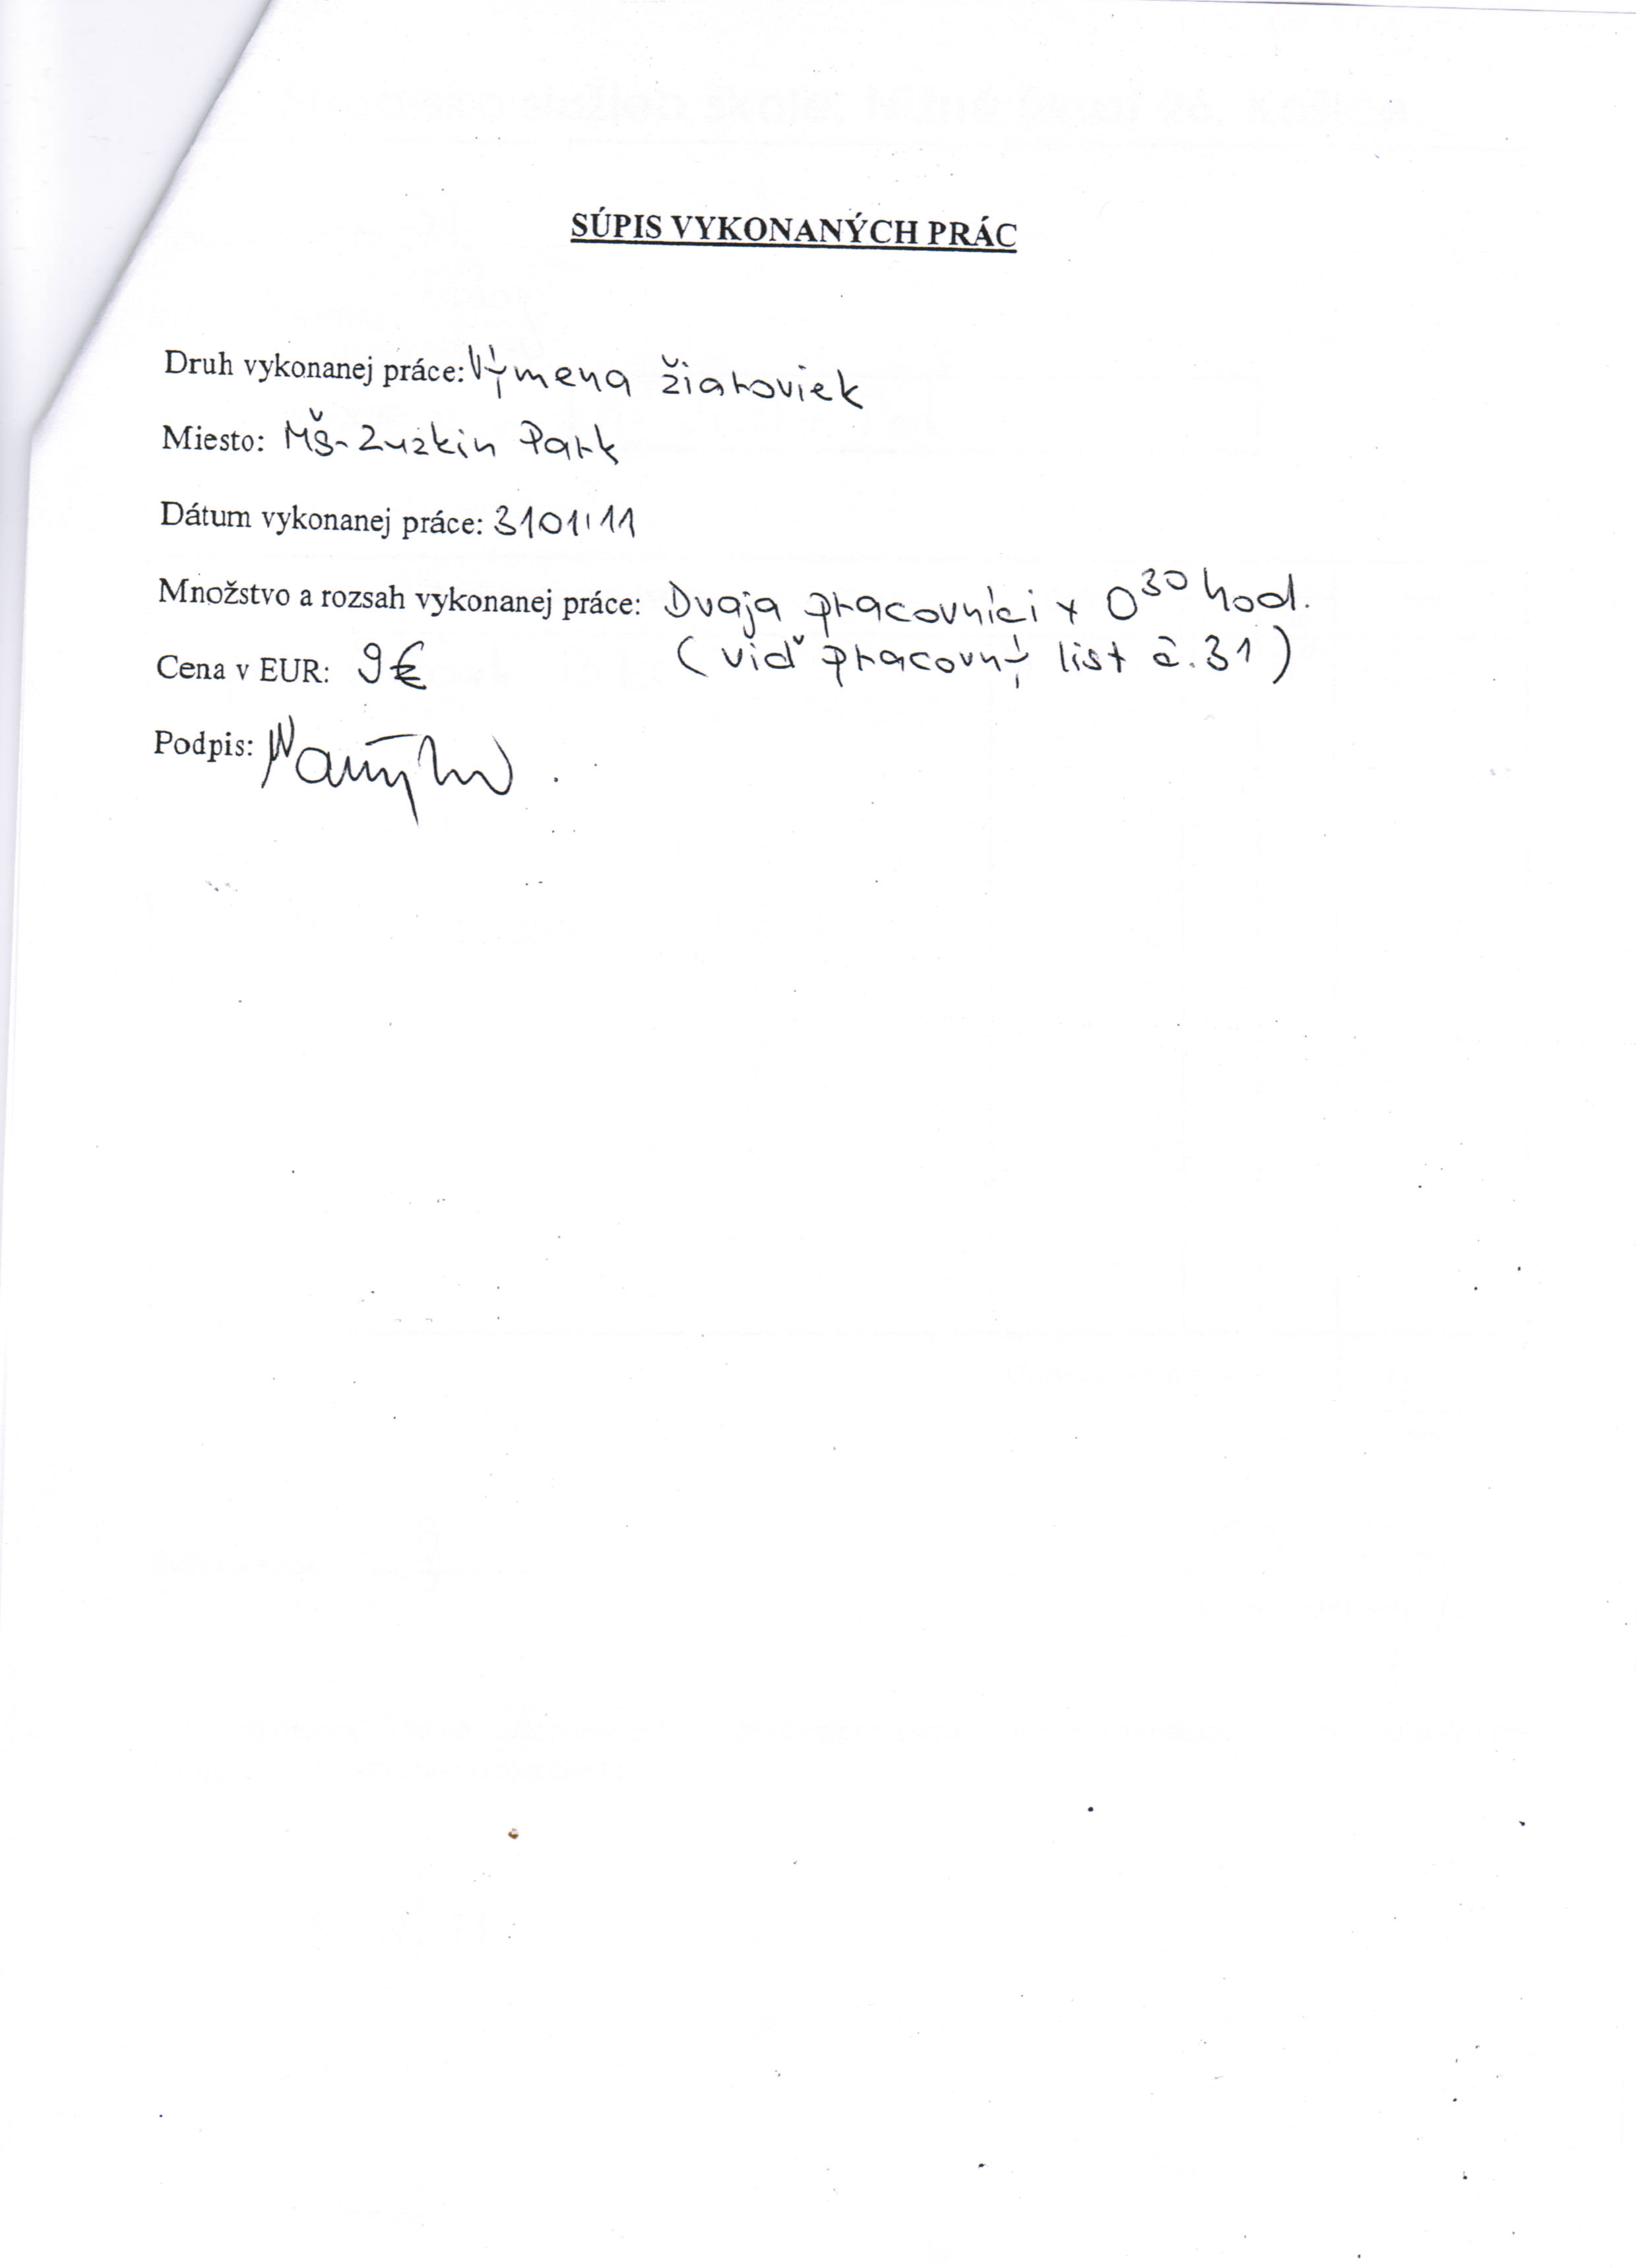 SÚPIS VYKONANÝCH PRÁC
Druh vykonanej práce: Výmena žiaroviek
Miesto: MŠ-Zuzkin Park
Dátum vykonanej práce: 3101'11
Množstvo a rozsah vykonanej práce: Dvaja pracovníci x 0³⁰ hod.
Cena v EUR: 9€ (viď pracovný list č.31)
Podpis: